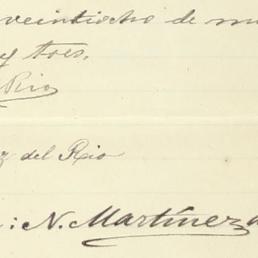 veintiocho de m
y tres.
Rio
z del Rio
: N. Martínez